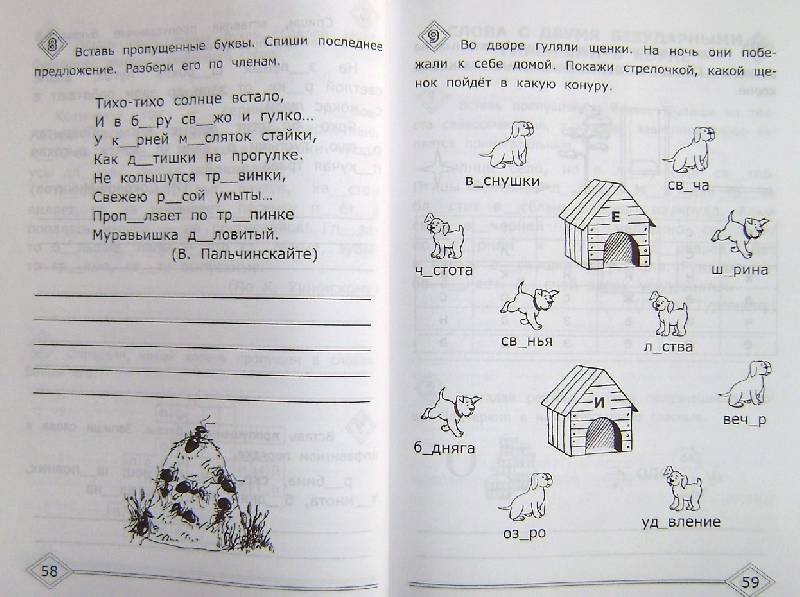 8
Вставь пропущенные буквы. Спиши последнее
предложение. Разбери его по членам.
Тихо-тихо солнце встало,
И в б__ру св__жо и гулко...
У к__рней м__сляток стайки,
Как д__тишки на прогулке.
Не колышутся тр__винки,
Свежею р__сой умыты...
Проп__лзает по тр__пинке
Муравьишка д__ловитый.
(В. Пальчинскайте)
58
9
Во дворе гуляли щенки. На ночь они побе-
жали к себе домой. Покажи стрелочкой, какой ще-
нок пойдёт в какую конуру.
в_снушки
св_ча
Е
ч_стота
ш_рина
св_нья
л_ства
И
б_дняга
веч_р
оз_ро
уд_вление
59